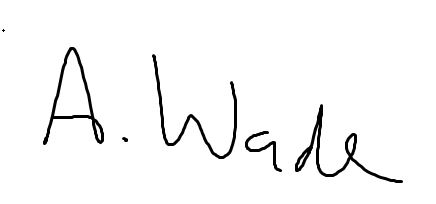 A. Wade